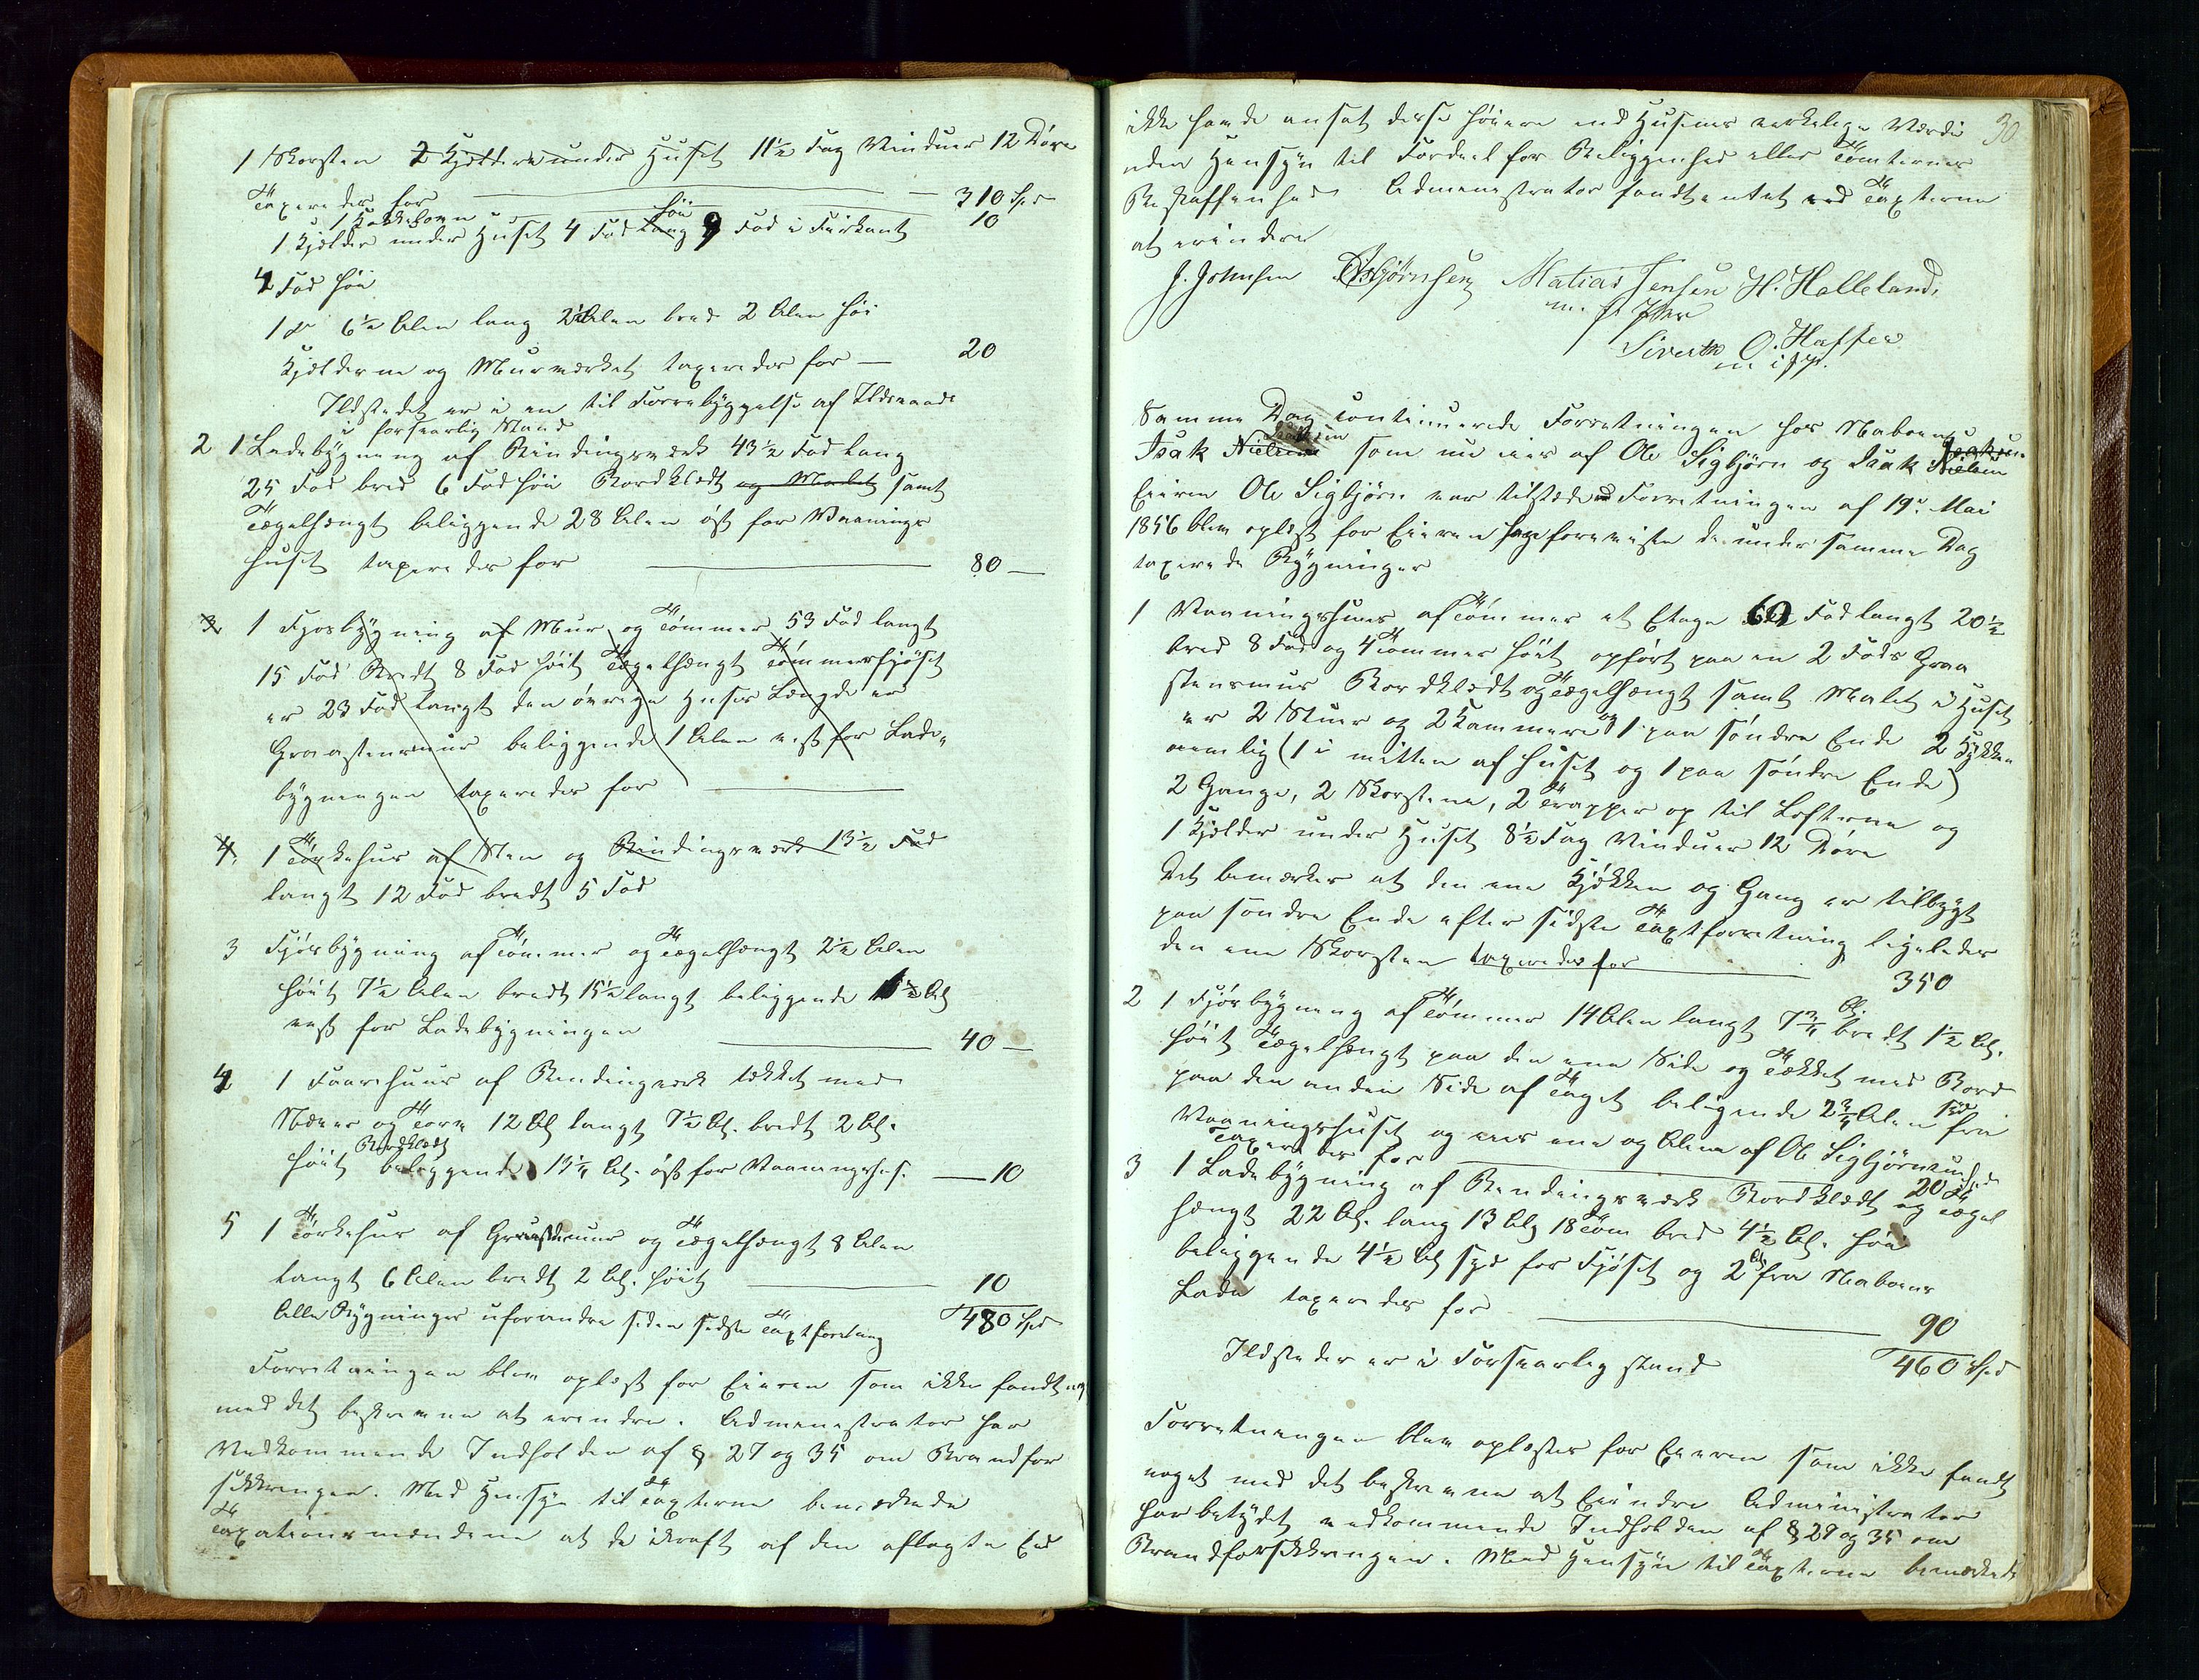 1 Skorsten 2 Kjeldere under Huset 11½ Fag Vinduer 12 Döre
Taxeredes for 310 Spd
1 Kakkelovn 10
1 Kjelder under Huset 4 Fod Lang höi 9 Fod i Fiirkant
4 Fod höi
1 do 6½ Alen lang 2½ Alen bred 2 Alen höi
Kjelderne og Murværket taxeredes for — 20
Ildstedet er i en til Forrebyggelse af Ildsvaade
i forsvarlig Stand
2 1 Ladebygning af Bindingsværk 43½ Fod Lang
25 Fod bred 6 Fod höi Bordklædt og Malet samt
Tægelhængt beliggende 28 Alen öst for Vaanings
huset taxeredes for 80 —
3 1 Fjosbygning af Mur og Tömmer 53 Fod langt
15 Fod Bredt 8 Fod höit Tægelhængt Tömmerfjöset
er 23 Fod langt den övrige Huses Længde er
Graastensmuur beliggende 1 Alen vest for Lade„
bygningen taxeredes for
4. 1 Törkehus af Sten og Bindingsværk 13½ Fod
langt 12 Fod bredt 5 Fod
3 Fjösbygning af Tömmer og Tægelhængt 2½ Alen
höit 7½ Alen bredt 15½ langt beliggende 1½ Al
vest for Ladebygningen 40 —
4 1 Faarehuus af Bindingværk tækket med
Næver og Torv 12 Al langt 7½ Al. bredt 2 Al.
höit Bordklædt beliggende 13¼ Al. öst for Vaaningshus. — 10
5 1 Törkehus af Graastensmuur og Tægelhængt 8 Alen
langt 6 Alen bredt 2 Al. höit 10
Alle Bygninger uforandre siden sidste Taxtforretning 480 Spd
Forretningen blev oplæst for Eieren som ikke fandt nog
med det beskrevne at erindre. Administrator har
Vedkommende Indholden af § 27 og 35 om Brandfor
sikkringen. Med Hensyn til Taxterne bemærkede
Taxationsmændene at de ikraft af den aflagte Eed
30
ikke havde ansat disse höiere end Husenes verkelige Værdi
uden Hensyn til Fordeel for Beliggenhed eller Tomternes
Beskaffenhed Administrator fandt intet ved Taxterne
at erindre
J. Johnsen Asbjörnsen Matias Jensen H. Helleland,
m. f. Pen
Sivert O. Haffen
m i f P.
Samme Dag Continuerede Forretningen hos Naboen
Isak Nielsen Isaksen som nu eies af Ole Sigbjörn og Isak Nielsen Isaksen
Eieren Ole Sigbjörn var tilstæde Forretningen af 19de Mai
1856 blev oplæst for Eieren han foreviste de under samme Dag
taxerede Bygninger
1 Vaaningshuus af Tömmer et Etage 60 Fod langt 20½
bred 8 Fod og 4 Tommer höit opfört paa en 2 Fods Graa
stensmur Bordklædt og Tægelhængt samt Malet i Huset
er 2 Stuer og 2 Kammere og 1 paa söndre Ende 2 Kjökken
nemlig (1 i mitten af huset og 1 paa söndre Ende)
2 Gange, 2 Skorstene, 2 Trapper op til Lofterne og
1 Kjelder under Huset 8½ Fag Vinduer 12 Döre
Det bemærkes at den ene Kjökken og Gang er tilbygt
paa söndre Ende efter sidste Taxtforretning ligeledes
den ene Skorsten taxeredes for 350
2 1 Fjösbygning af Tömmer 14 Alen langt 7¾ Al. bredt 1½ Al.
höit Tægelhængt paa den ene Side og Tækket med Bord
paa den anden Side af Taget beligende 2¾ Alen Syd fra
Vaaningshuset og eies ene og Alene af Ole Sigbjörnsen
Taxeredes for 20 Spd
3 1 Ladebygning af Bindingsværk Bordklædt og Tægel
hængt 22 Al. lang 13 Al 18 Tom bred 4½ Al. höi
beliggende 4½ Al syd for Fjöset og 2 Al fra Naboens
Lade taxeredes for 90
Ildsteder er i Forsvarlig stand 460 Spd
Forretningen blev oplæstes for Eieren som ikke fandt
noget med det beskrevne at Erindre Administrator
har betydet vedkommende Indholden af § 27 og 35 om
Brandforsikkringen. Med Hensyn til Taxterne bemærkede